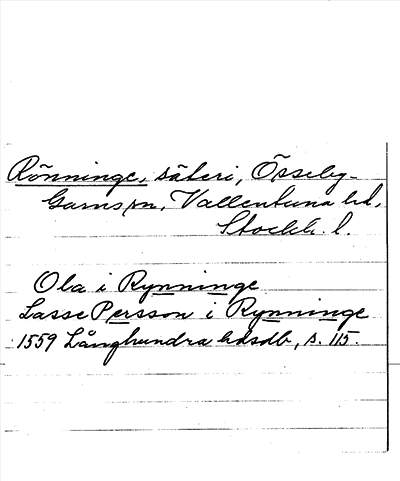 Rönninge, säteri, Össeby-
Garns sn, Vallentuna hd,
Stockh. l.
Ola i Rynninge
Lasse Persson i Rynninge
1559 Långhundra hdsdb, s. 115.